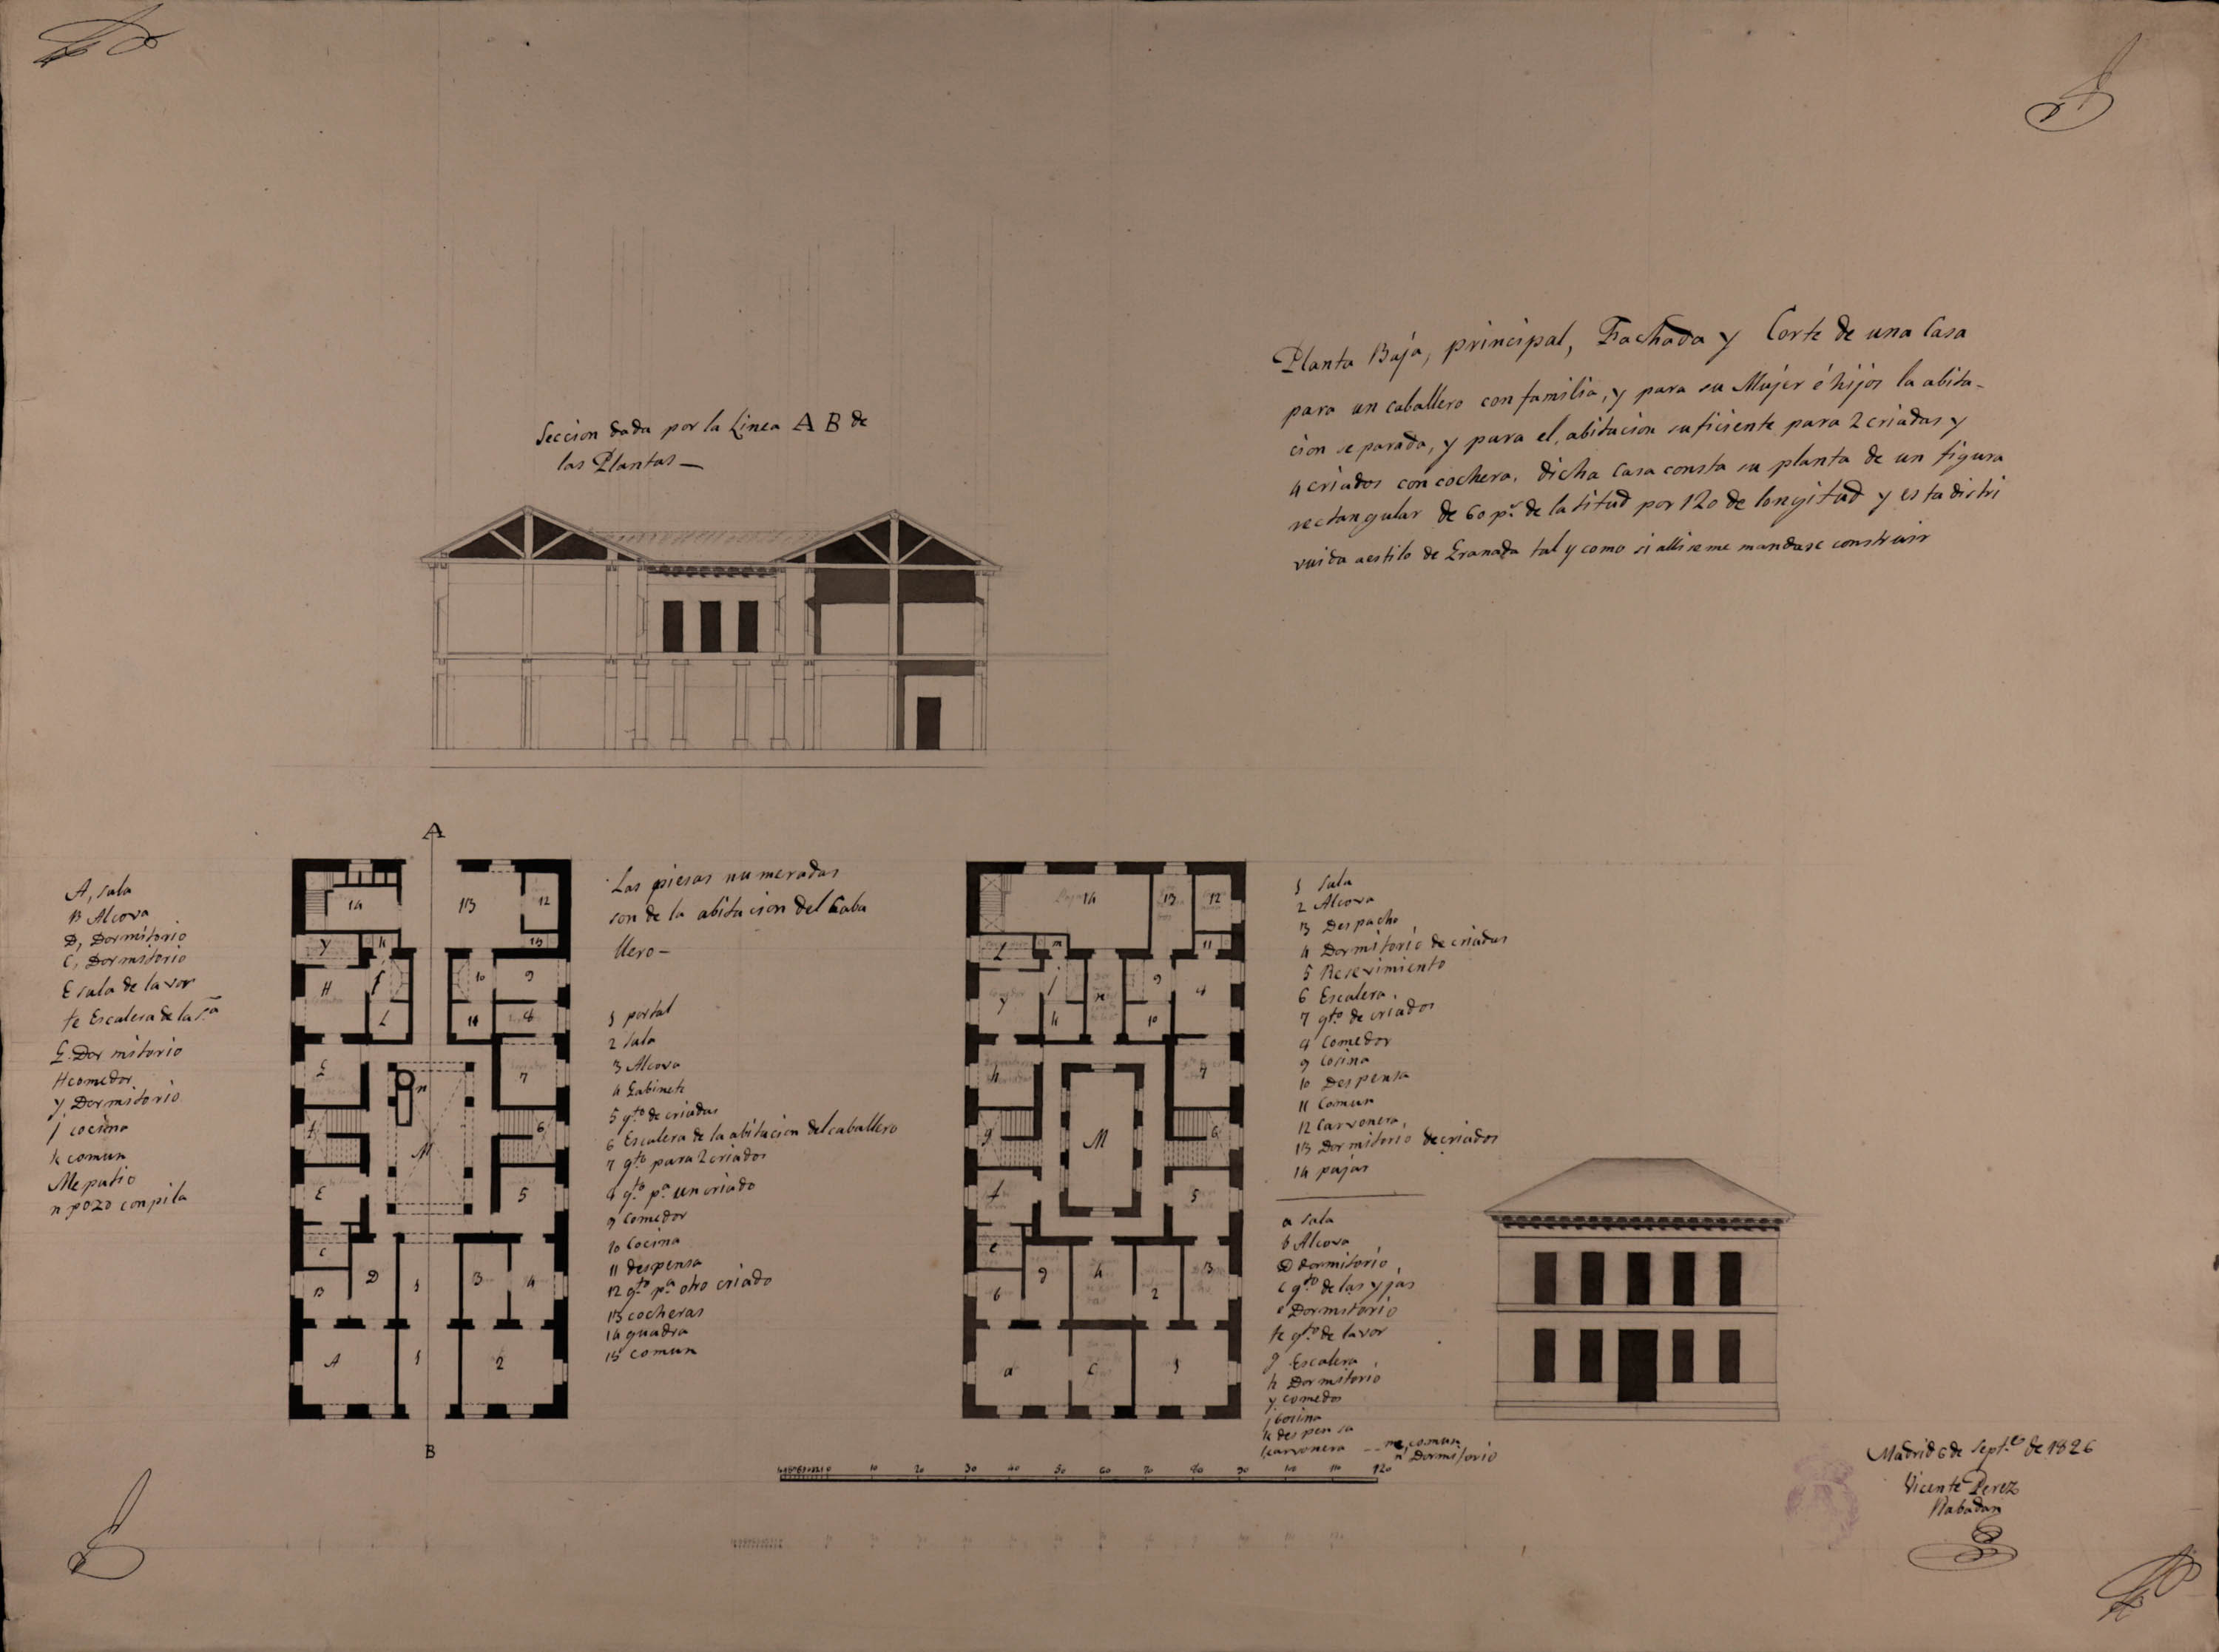 Planta Baja, principal, Fachada y Corte de una Casa
para un caballero con familia, y para su Mujer é hijos la abita-
cion separada, y para el, abitacion suficiente para 2 criadas y
4 criados con cochera. dicha Casa consta su planta de un figura
rectangular de 60 ps. de latitud por 120 de longitud y esta distri
vuida a estilo de Granada tal y como si alli se me mandase construir
Seccion dada por la Linea A B de
las Plantas—
A
B
A, sala
B Alcova
D, Dormitorio
C, Dormitorio
E sala de lavor
fe Escalera de la S.ª
G. Dormitorio
H comedor
Y Dormitorio
j cocina
k comun
M patio
n pozo con pila
Las piesas numeradas
son de la abitacion del Caba
llero—
1 portal
2 sala
3 Alcova
4 Gabinete
5 qto de criadas
6 Escalera de la abitacion del caballero
7 qto para 2 criados
8 qto pª un criado
9 Comedor
10 Cocina
11 despensa
12 qto pª otro criado
13 cocheras
14 quadra
15 comun
1 Sala
2 Alcova
3 Despacho
4 Dormitorio de criadas
5 Recevimiento
6 Escalera.
7 qto de criados
8 Comedor
9 Cocina
10 Despensa
11 Comun
12 Carvonera,
13 Dormitorio de criados
14 pajar
a sala
b Alcova
D dormitorio
c qto de las yjas
e Dormitorio
fe qto de lavor
g Escalera
h Dormitorio
y comedor
j Cocina
k despensa
l carvonera -- m, comun
n Dormitorio
10 20 30 40 50 60 70 80 90 100 110 120
Madrid 6 de Septe. de 1826
Vicente Perez
Rabadan